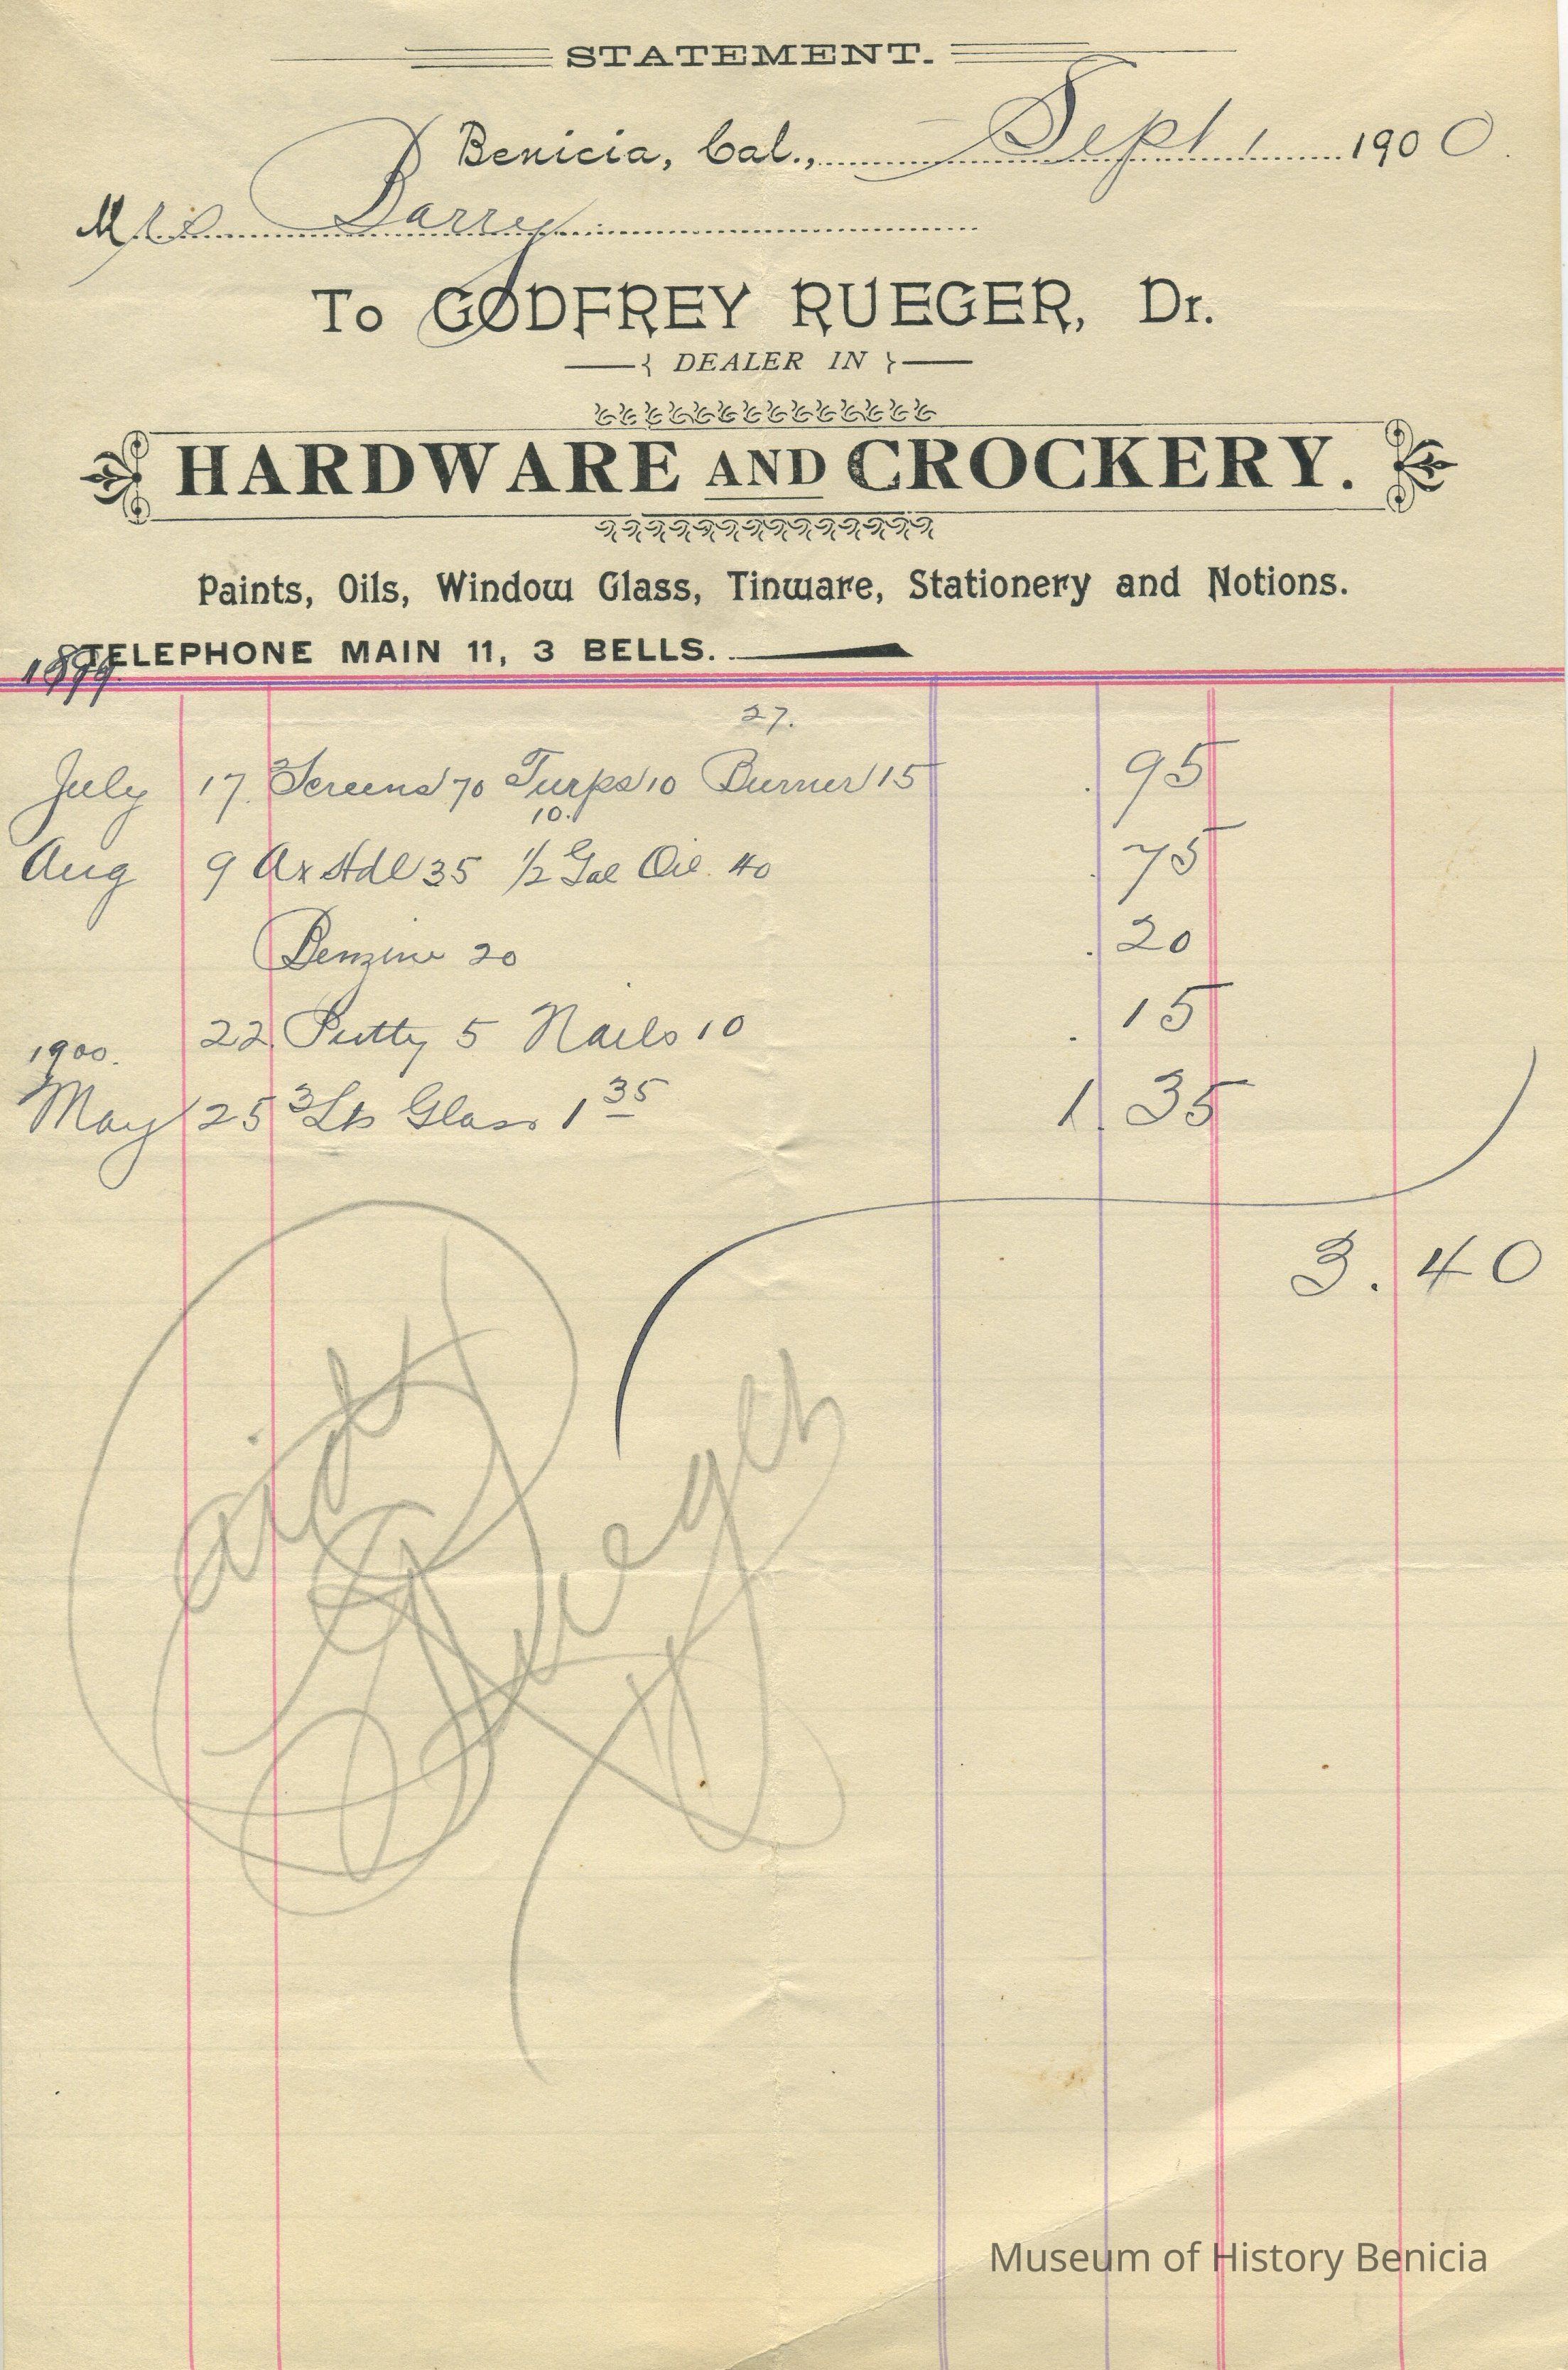 STATEMENT.
Benicia, Cal., Sept 1 1900.
Mrs Barry
To GODFREY RUEGER, Dr.
DEALER IN
HARDWARE AND CROCKERY.
Paints, Oils, Window Glass, Tinware, Stationery and Notions.
TELEPHONE MAIN 11, 3 BELLS.
1899
27.
July 17 Screens 70 Turps 10 Burner 15 .95
10.
Aug 9 Ax Hdl 35 1/2 Gal Oil. 40 .75
Benzine 20 .20
22 Putty 5 Nails 10 .15
1900.
May 25 3 Lts Glass 1 35 1.35
3.40
Paid
Rueger
Museum of History Benicia